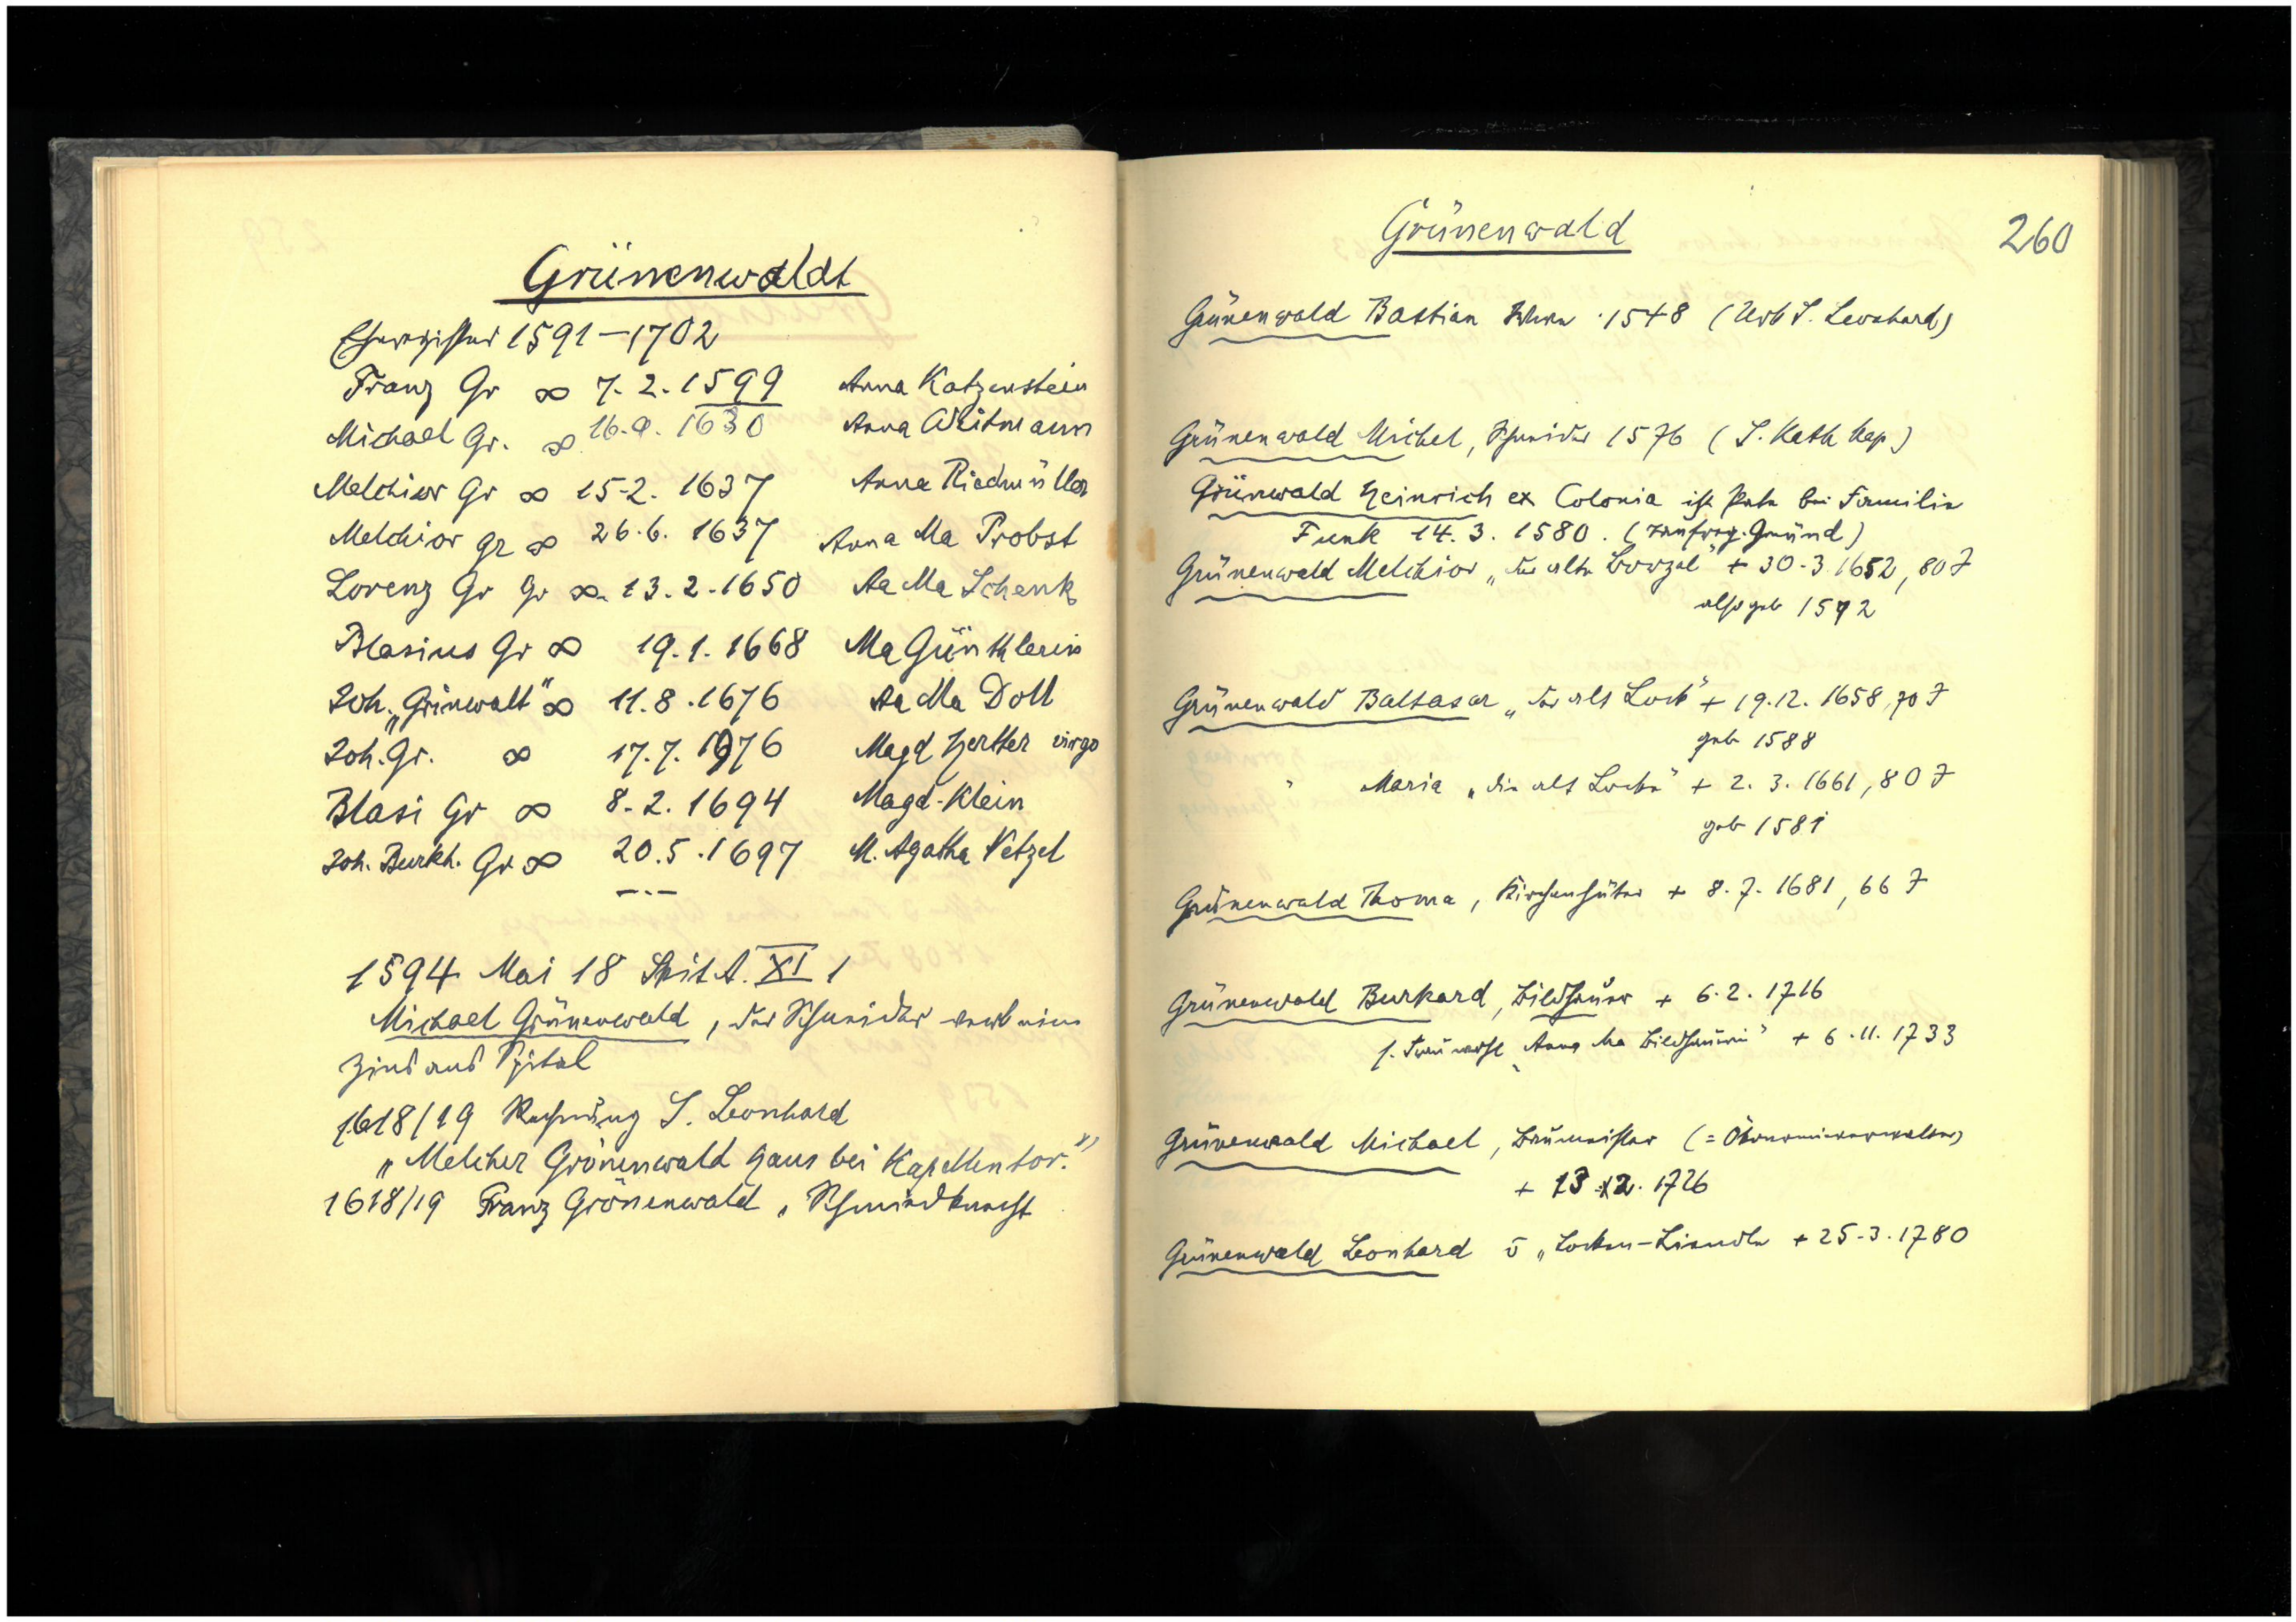 Grünenwaldt
Eheregister 1591–1702
Franz Gr ∞ 7.2.1599 Anna Katzenstein
Michael Gr. ∞ 1630 Anna Weitmann
Melchior Gr ∞ 15.2. 1637 Anna Riedmüller
Melchior gr ∞ 26.6. 1637 Anna Ma Probst
Lorenz Gr Gr ∞ 13.2.1650 Aa Ma Schenk
Blasius Gr ∞ 19.1.1668 Ma Günthlerin
Joh. „Grinwalt" ∞ 11.8.1676 Aa Ma Doll
Joh. Gr. ∞ 17.7. Magd Hertter virgo
Blasi Gr ∞ 8.2.1694 Magd. Klein
Joh. Burkh. Gr ∞ 20.5.1697 M. Agatha Vetzel
1594 Mai 18 Spit A. XI 1
Michael Grünenwald, der Schneider
Zins aus Spital
1618/19 Rechnung S. Leonhard
„Melcher Grönenwald Haus bei Kapellentor."
1618/19 Franz Grönenwald, Schmiedknecht
Grünenwald
260
Grünenwald Bastian 1548 (Urb S. Leonhard)
Grünenwald Michel, Schneider 1576 (S. Kath Kap)
Grünwald Heinrich ex Colonia ist Pate bei Familie
Funk 14.3.1580. (Taufreg. Gmünd)
Grünenwald Melchior „der alte + 30.3.1652, 80 J
also geb 1572
Grünenwald Baltasar „der alt Lock" + 19.12.1658, 70 J
geb 1588
" Maria „die alt Locke" + 2.3.1661, 80 J
geb 1581
Grünenwald Thoma, Kirchenhüter + 8.7.1681, 66 J
Grünenwald Burkard, Bildhauer + 6.2.1716
s. Frau wohl „Anna Ma Bildhauerin" + 6.11.1733
Grünenwald Michael, Baumeister (= Ökonomieverwalter)
+ 13.12.1726
Grünenwald Leonhard v „Locken- + 25.3.1780